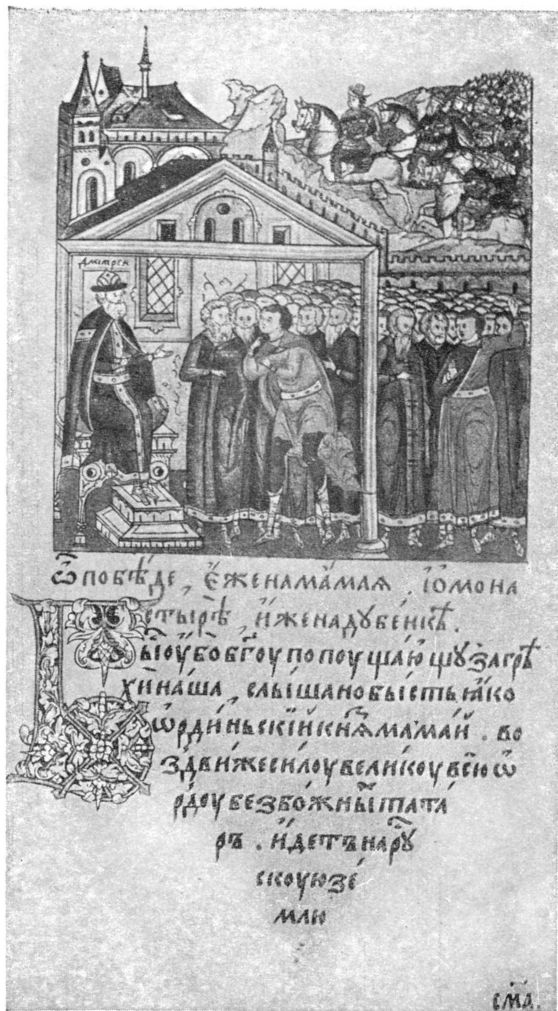 дмитрей
ѿ побѣде, е́же на мамая, і ѡ мона
стырѣ, и́же на дубе́нкѣ.
Бы́ оу҆бо бг҃оу попоущаю́щу за грѣ
хи на́ша, слы́шано бы́сть ꙗко
ѡрди́ньскїй кн҃зь мама́й. во
здви́же силоу великоу всю̀ ѡ
рдоу безбо́жны́ тата
ръ. и́детъ на рꙋ́
скоую зе́
млю
сма.